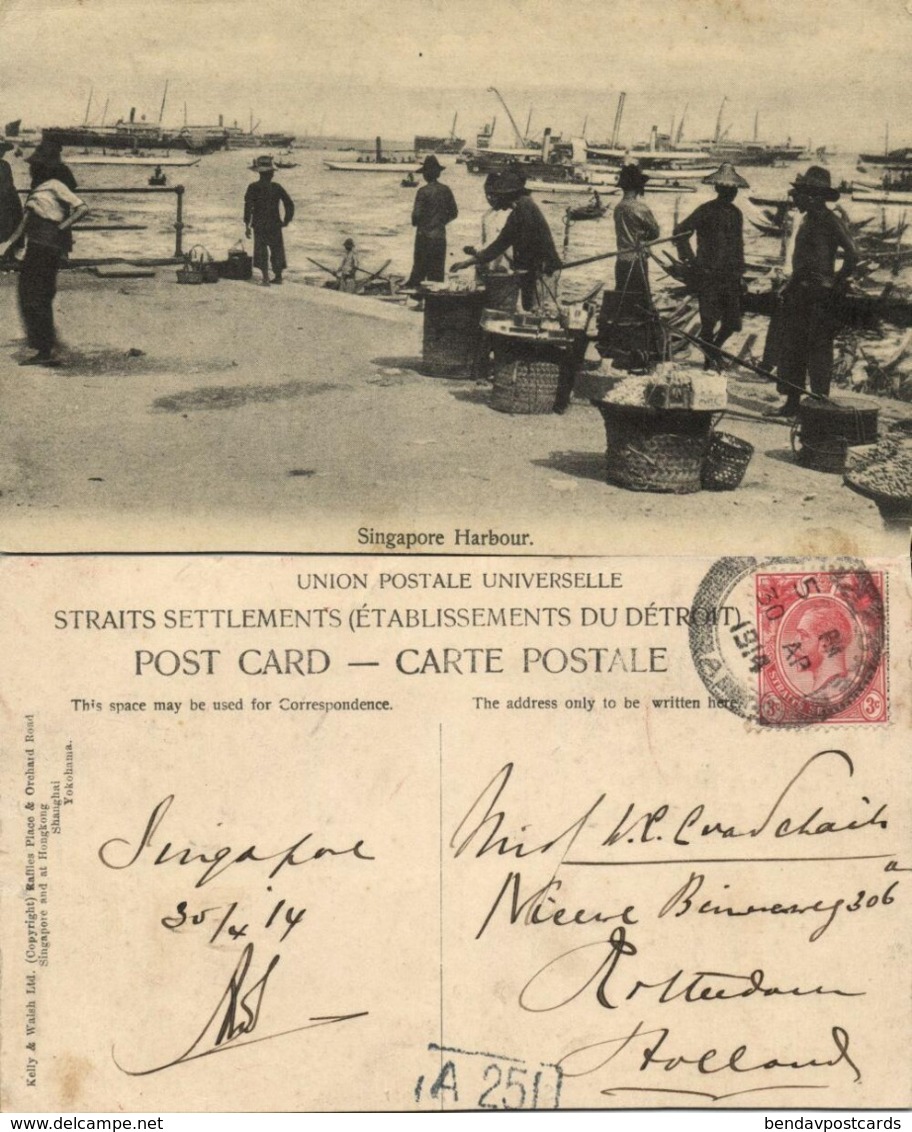 Singapore Harbour.
UNION POSTALE UNIVERSELLE
STRAITS SETTLEMENTS (ÉTABLISSEMENTS DU DÉTROIT)
POST CARD — CARTE POSTALE
This space may be used for Correspondence.
The address only to be written here.
5 PM
30 AP
1914
STRAITS
3c 3c
Kelly & Walsh Ltd. (Copyright) Raffles Place & Orchard Road
Singapore and at Hongkong
Shanghai
Yokohama.
Singapore
30/4 14
W. C.
Nieuwe Binnenweg 306a
Rotterdam
Holland
A 251
delcampe.net
bendavpostcards